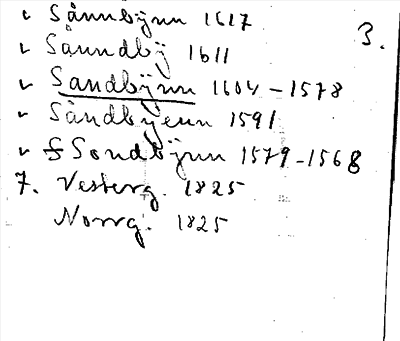 v Sånnbÿnn 1617
3.
v Såundbÿ 1611
v Sandbÿnn 1604-1578
v Såndbÿenn 1591
v f Sondbÿnn 1579-1568
7. Vesterg. 1825
Norrg. 1825